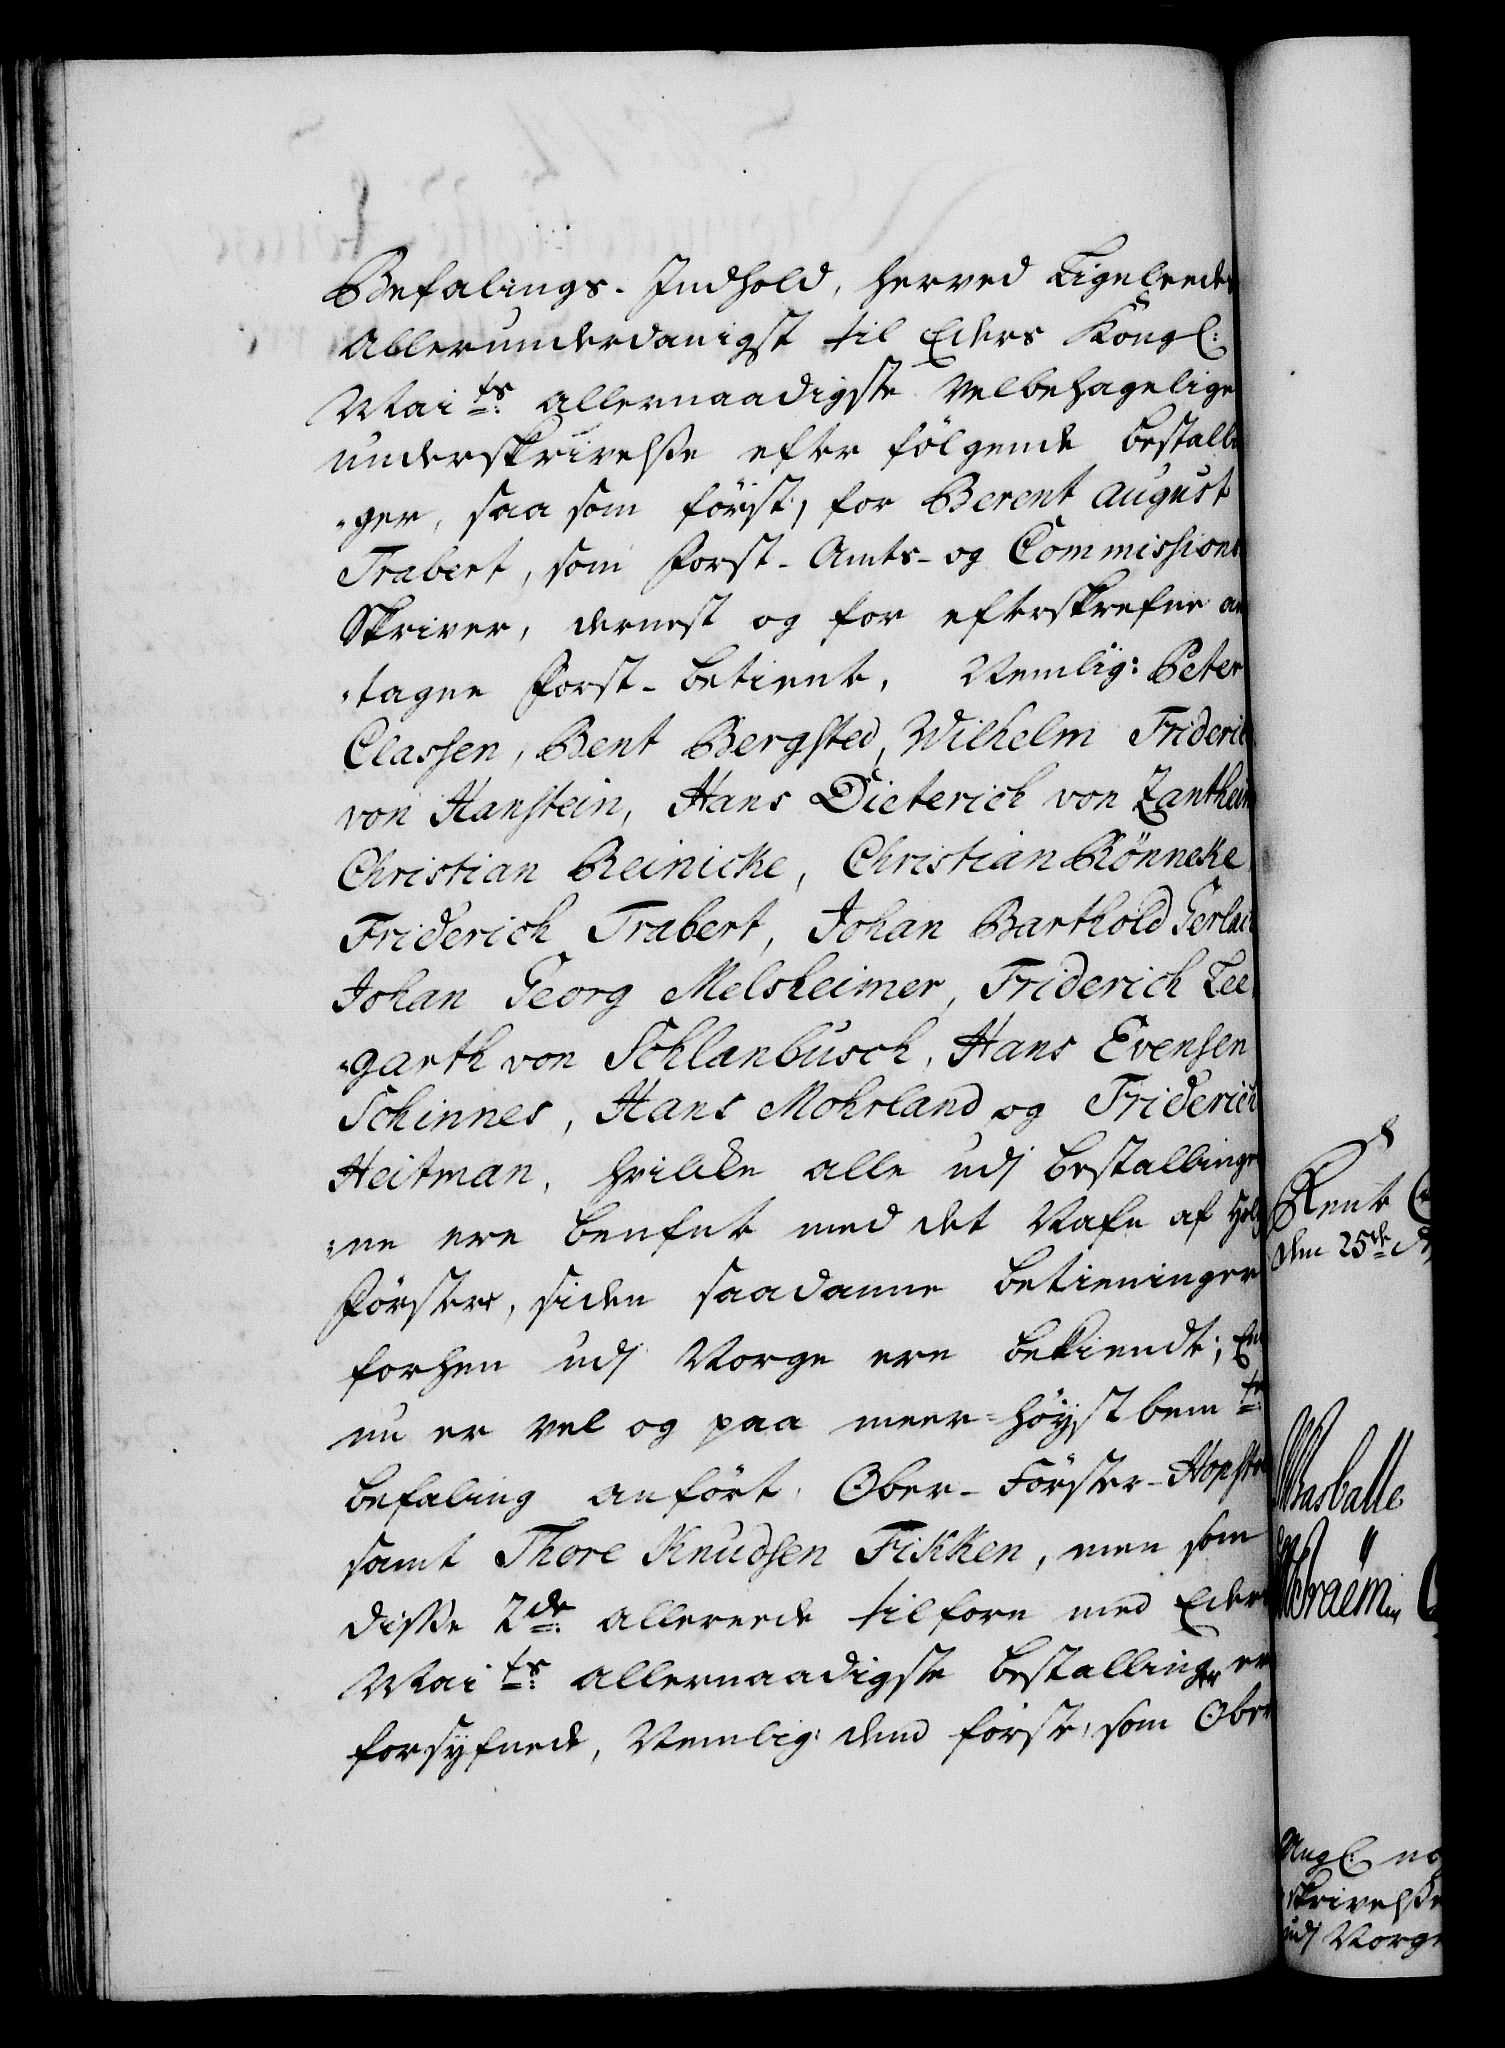 Befalings-Indhold, herved Ligeleedes
Allerunderdanigst til Eders Kongl:
Mai ts: allernaadigste Velbehagelige
underskrivelse efter følgende bestalln
-ger, saa som först, for Berent August
Trabert, som Forst-Amts- og Commissions
Skriver, dernest og for efterskrefne an
-tagne Forst-betiente, Nemlig: Peter
Classen, Bent Bergsted, Wilhelm Friderich
von Hanstein, Hans Dieterich von Zantheim
Christian Reinicke, Christian Rönneke,
Friderich Trabert, Johan Barthold Gerlach
Johan Georg Melsheimer, Friderich Lee
-garth von Schlanbusch, Hans Evensen
Schinnes, Hans Mohrland og Friderich
Heitman, hvilke alle udj bestallinger
-ne ere benefnt med det Nafn af Holtz
Förster, siden saadanne betieninger
forhen udj Norge ere bekiendt; End
nu er vel og paa meer-höyst bem te:
befaling anfört Ober-Förster Hopst
samt Thore Knudsen Fikken, men som
disse 2de allereede tilforn med Eders
Mai ts: allernaadigste bestallinger er
forsyfnede, Nemlig: dend förste, som Ober
Rente C
den 25de
Basballe
Ugl: no
skrivelse
udj Norge